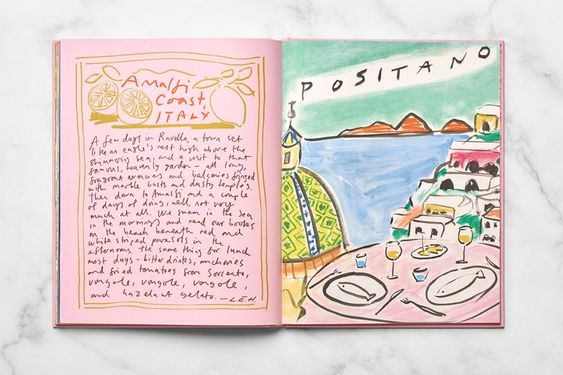 Amalfi
Coast,
ITALY
A few days in Ravello, a town set
like an eagle's nest high above the
shimmering sea, and a visit to that
famous, heavenly garden – all long,
fragrant avenues and balconies fringed
with marble busts and dusty temples.
Then down to Amalfi and a couple
of days of doing, well, not very
much at all. We swam in the sea
in the mornings and read our books
on the beach beneath red and
white striped parasols in the
afternoons, the same thing for lunch
most days – bitter drinks, anchovies
and fried tomatoes from Sorrento,
vongole, vongole, vongole,
and hazelnut gelato. – L.E.H.
POSITANO